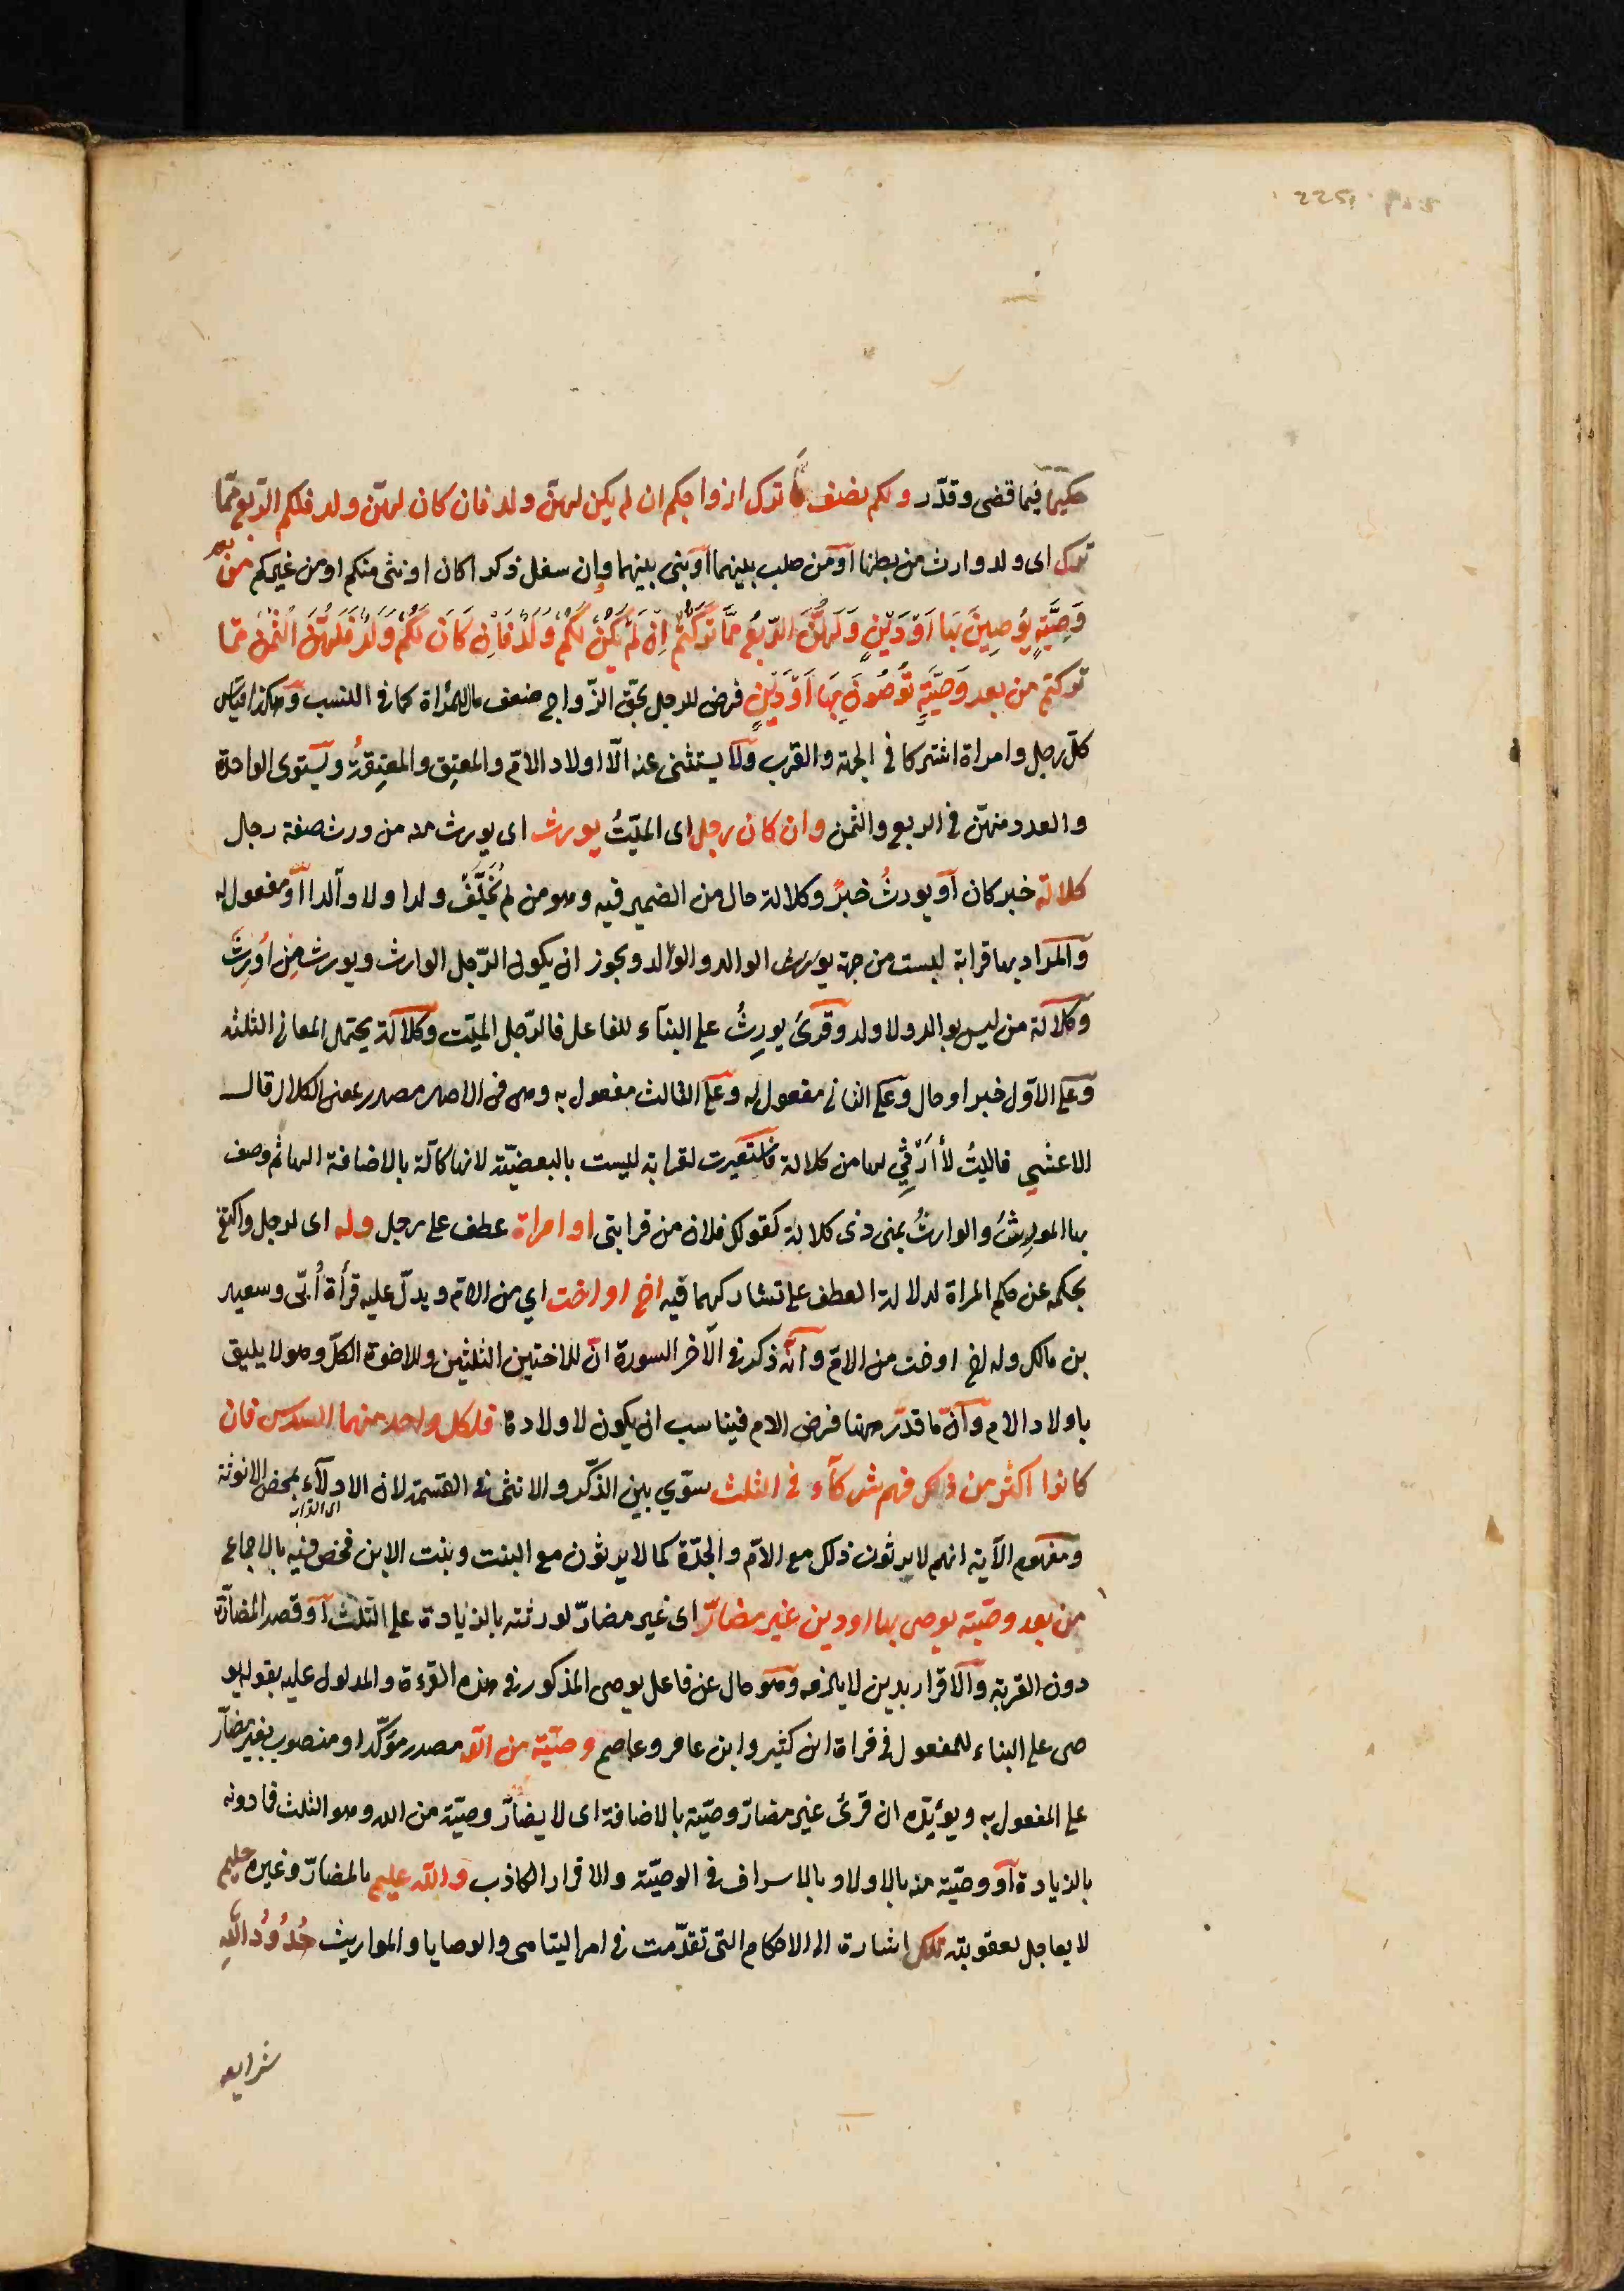 حكيما فيما قضى وقدّر ولكم نصف ما ترك ازواجكم ان لم يكن لهنّ ولد فان كان لهنّ ولد فلكم الرّبع ممّا
تركن اى ولد وارث من بطنها او من صلب بنيها او بنى بنيها وان سفل ذكرا كان او انثى منكم او من غيركم من بعد
وَصِيَّةٍ يُوصِينَ بَهَا اَوْ دَيْنٍ وَلَهُنَّ الرّبُعُ مّمَا تَرَكْتُمْ اِن لَمْ يَكُنْ لَكُمْ وَلَدٌ فَاِن كَانَ لَكُمْ وَلَدٌ فَلَهُنَّ الثُّمُنُ ممّا
تركتم من بعد وَصيَّةٍ تُوصُونَ بِهَا اَوْ دَيْنٍ فرض للرجل بحقّ الزّواج ضعف ما للمراة كما فى النسب وهكذا قياس
كلّ رجل وامراة اشتركا فى الجهة والقرب ولا يستثنى عنه الّا اولاد الامّ والمعتِق والمعتِقةُ ويستوى الواحدة
والعدد منهنّ فى الربع والثمن وان كان رجل اى الميّتُ يورث اى يورث منه من ورث صفة رجل
كلالة خبر كان او يورثُ خبرٌ وكلالة حال من الضمير فيه وهو من لم يُخَلِّفْ ولدا ولا والدا او مفعول له
والمراد بها قرابة ليست من جهة الوالد والولد ويجوز ان يكون الرّجل الوارث ويورث مِن اُورِثَ
وكلالة من ليس بوالد ولا ولد وقرئ يورِثُ على البنآء للفاعل فالرّجل الميّت وكلالة يحتمل المعانى الثلثه
وعلى الاوّل خبر او حال وعلى الثانى مفعول له وعلى الثالث مفعول به وهى فى الاصل مصدر بمعنى الكلال قال
الاعشي فاليتُ لا أرْثِي لها من كلالة فاستعيرت لقرابة ليست بالبعضيّة لانها كالّة بالاضافة اليها ثم وصف
بها المورِثُ والوارثُ بمعنى ذى كلالة كقولك فلان من قرابتى او امراة عطف على رجل وله اى لرجل واكتفى
بحكمه عن حكم المراة لدلالة العطف على تشاركهما فيه اخ او اخت اي من الامّ ويدلّ عليه قرأة اُبىّ وسعيد
بن مالك وله اخ او اخت من الامّ وانّه ذكر فى الآخر السورة انّ للاختين الثلثين وللاخوة الكلّ وهو لا يليق
باولاد الام وانّ ما قدّر ههنا فرض الام فيناسب ان يكون لاولادها فلكل واحد منهما السدس فان
كانوا اكثر من ذلك فهم شركآء فى الثلث سوّي بين الذّكر والانثى فى القسمة لان الادلآء بمحض الانوثة
اى القرابه
ومفهوم الآية انهم لا يرثون ذلك مع الامّ والجدّة كما لا يرثون مع البنت وبنت الابن فخصّ فيه بالاجماع
من بعد وصيّة يوصى بها او دين غير مضارّ اى غير مضارّ لورثته بالزيادة على الثلث او قصد المضارّة
دون القربة والاقرار بدين لا يلزمه وهو حال عن فاعل يوصى المذكور فى هذه القرءة والمدلول عليه بقوله يو
صى على البناء للمفعول فى قراة ابن كثير وابن عامر وعاصم وصيّة من الله مصدر مؤكّد او منصوب بغير مضارّ
على المفعول به ويؤيّده ان قرئ غير مضارّ وصيّة بالاضافة اى لا يضارّ وصيّة من الله وهو الثلث فما دونه
بالزيادة او وصيّة منه بالاولاد بالاسراف فى الوصيّة والاقرار الكاذب والله عليم بالمضارّ وغيره حليم
لا يعاجل لعقوبته تلك اشارة الى الاحكام التى تقدّمت فى امر اليتامى والوصايا والمواريث حُدُودُ اللهِ
شرايعه